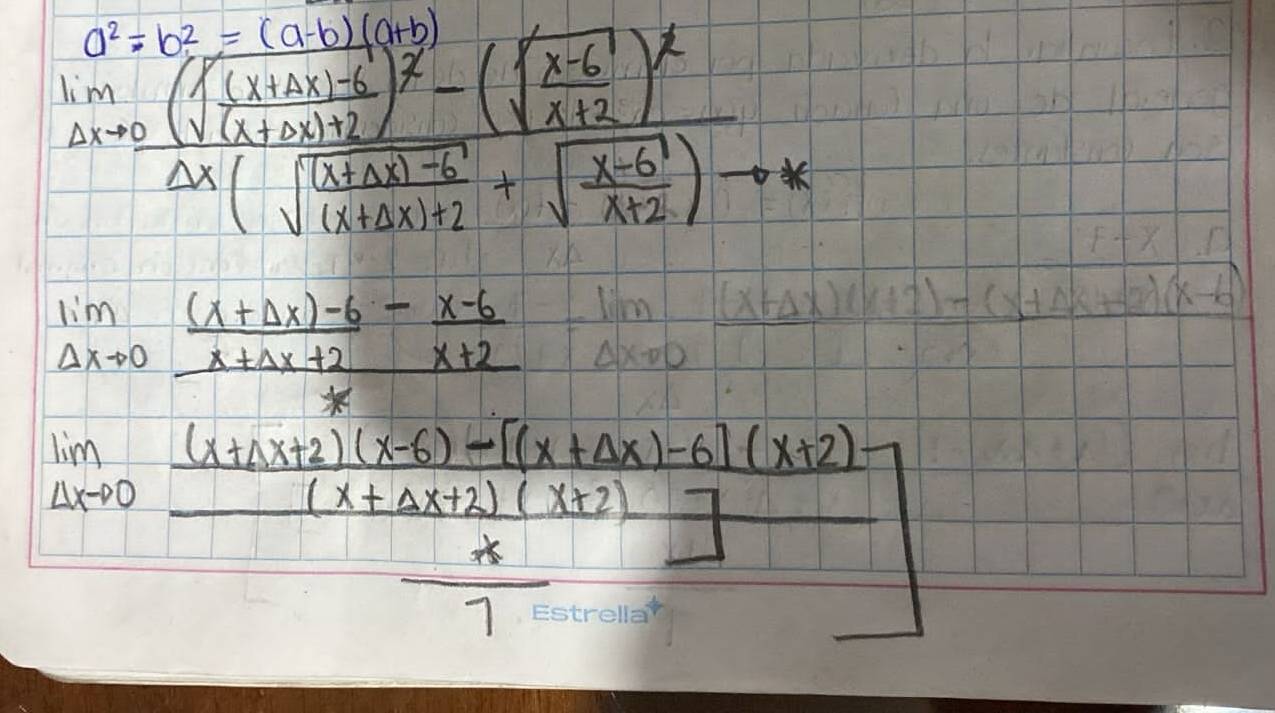 a² - b² = (a-b)(a+b)
lim Δx→0 (√((x+Δx)-6 / (x+Δx)+2))² - (√(x-6 / x+2))²
Δx ( √((x+Δx)-6 / (x+Δx)+2) + √(x-6 / x+2) ) → *
lim Δx→0 (x+Δx)-6 / x+Δx+2 - x-6 / x+2
*
lim Δx→0 (x+Δx+2)(x-6) - [(x+Δx)-6](x+2)
(x+Δx+2)(x+2)
*
1
Estrella